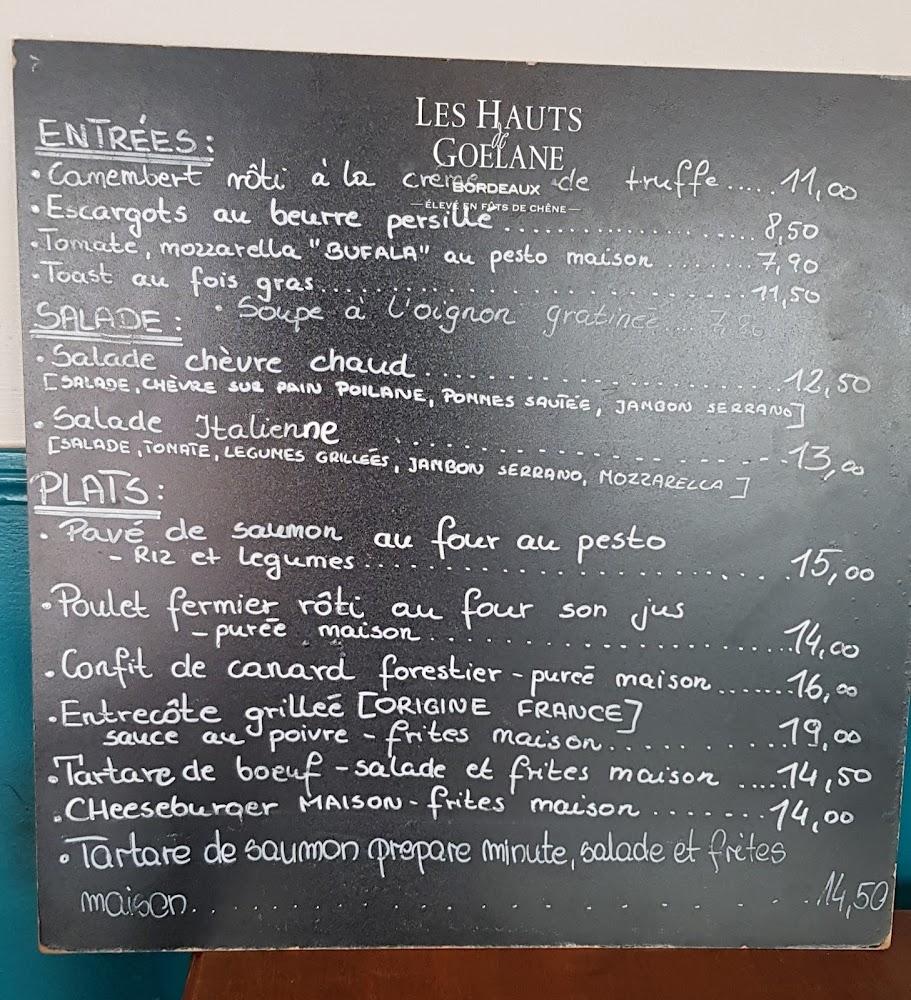 LES HAUTS
de
GOELANE
BORDEAUX
— ÉLEVÉ EN FÛTS DE CHÊNE —
ENTRÉES :
• Camembert rôti à la creme de truffe ..... 11,00
• Escargots au beurre persillé .................... 8,50
• Tomate, mozzarella "BUFALA" au pesto maison ........ 7,90
• Toast au fois gras .............................. 11,50
• Soupe à l'oignon gratinée ....
SALADE :
• Salade chèvre chaud .............................. 12,50
[SALADE, CHÈVRE SUR PAIN POILANE, POMMES SAUTÉE, JAMBON SERRANO]
• Salade Italienne .............................. 13,00
[SALADE, TOMATE, LEGUMES GRILLÉES, JAMBON SERRANO, MOZZARELLA]
PLATS :
• Pavé de saumon au four au pesto
- RIZ et legumes .............................. 15,00
• Poulet fermier rôti au four son jus
- purée maison .............................. 14,00
• Confit de canard forestier - pureé maison ....... 16,00
• Entrecôte grilleé [ORIGINE FRANCE]
sauce au poivre - frites maison .............. 19,00
• Tartare de boeuf - salade et frites maison ..... 14,50
• CHeeseburger MAISON - frites maison ........ 14,00
• Tartare de saumon prepare minute, salade et frites
maison .............................. 14,50